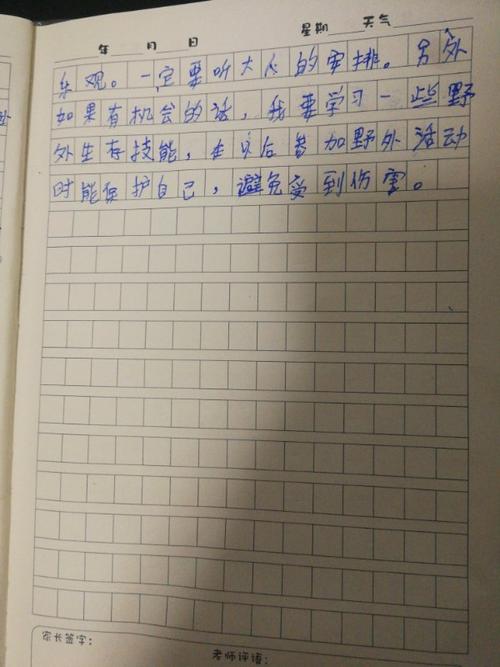 年 月 日 星期 天气
乐观。一定要听大人的安排。另外
如果有机会的话，我要学习一些野
外生存技能，在以后参加野外活动
时能保护自己，避免受到伤害。
家长签字：
老师评语：